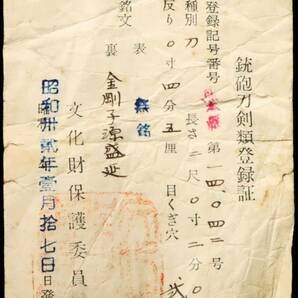 銃砲刀剣類登録証
登録記号番号 第四〇四二号
種別 刀 長さ 二尺〇寸二分〇
反り 〇寸四分五厘 目くぎ穴 弐
銘文 表 無銘
裏 金剛子源盛延
文化財保護委員
昭和卅貳年壹月拾七日発